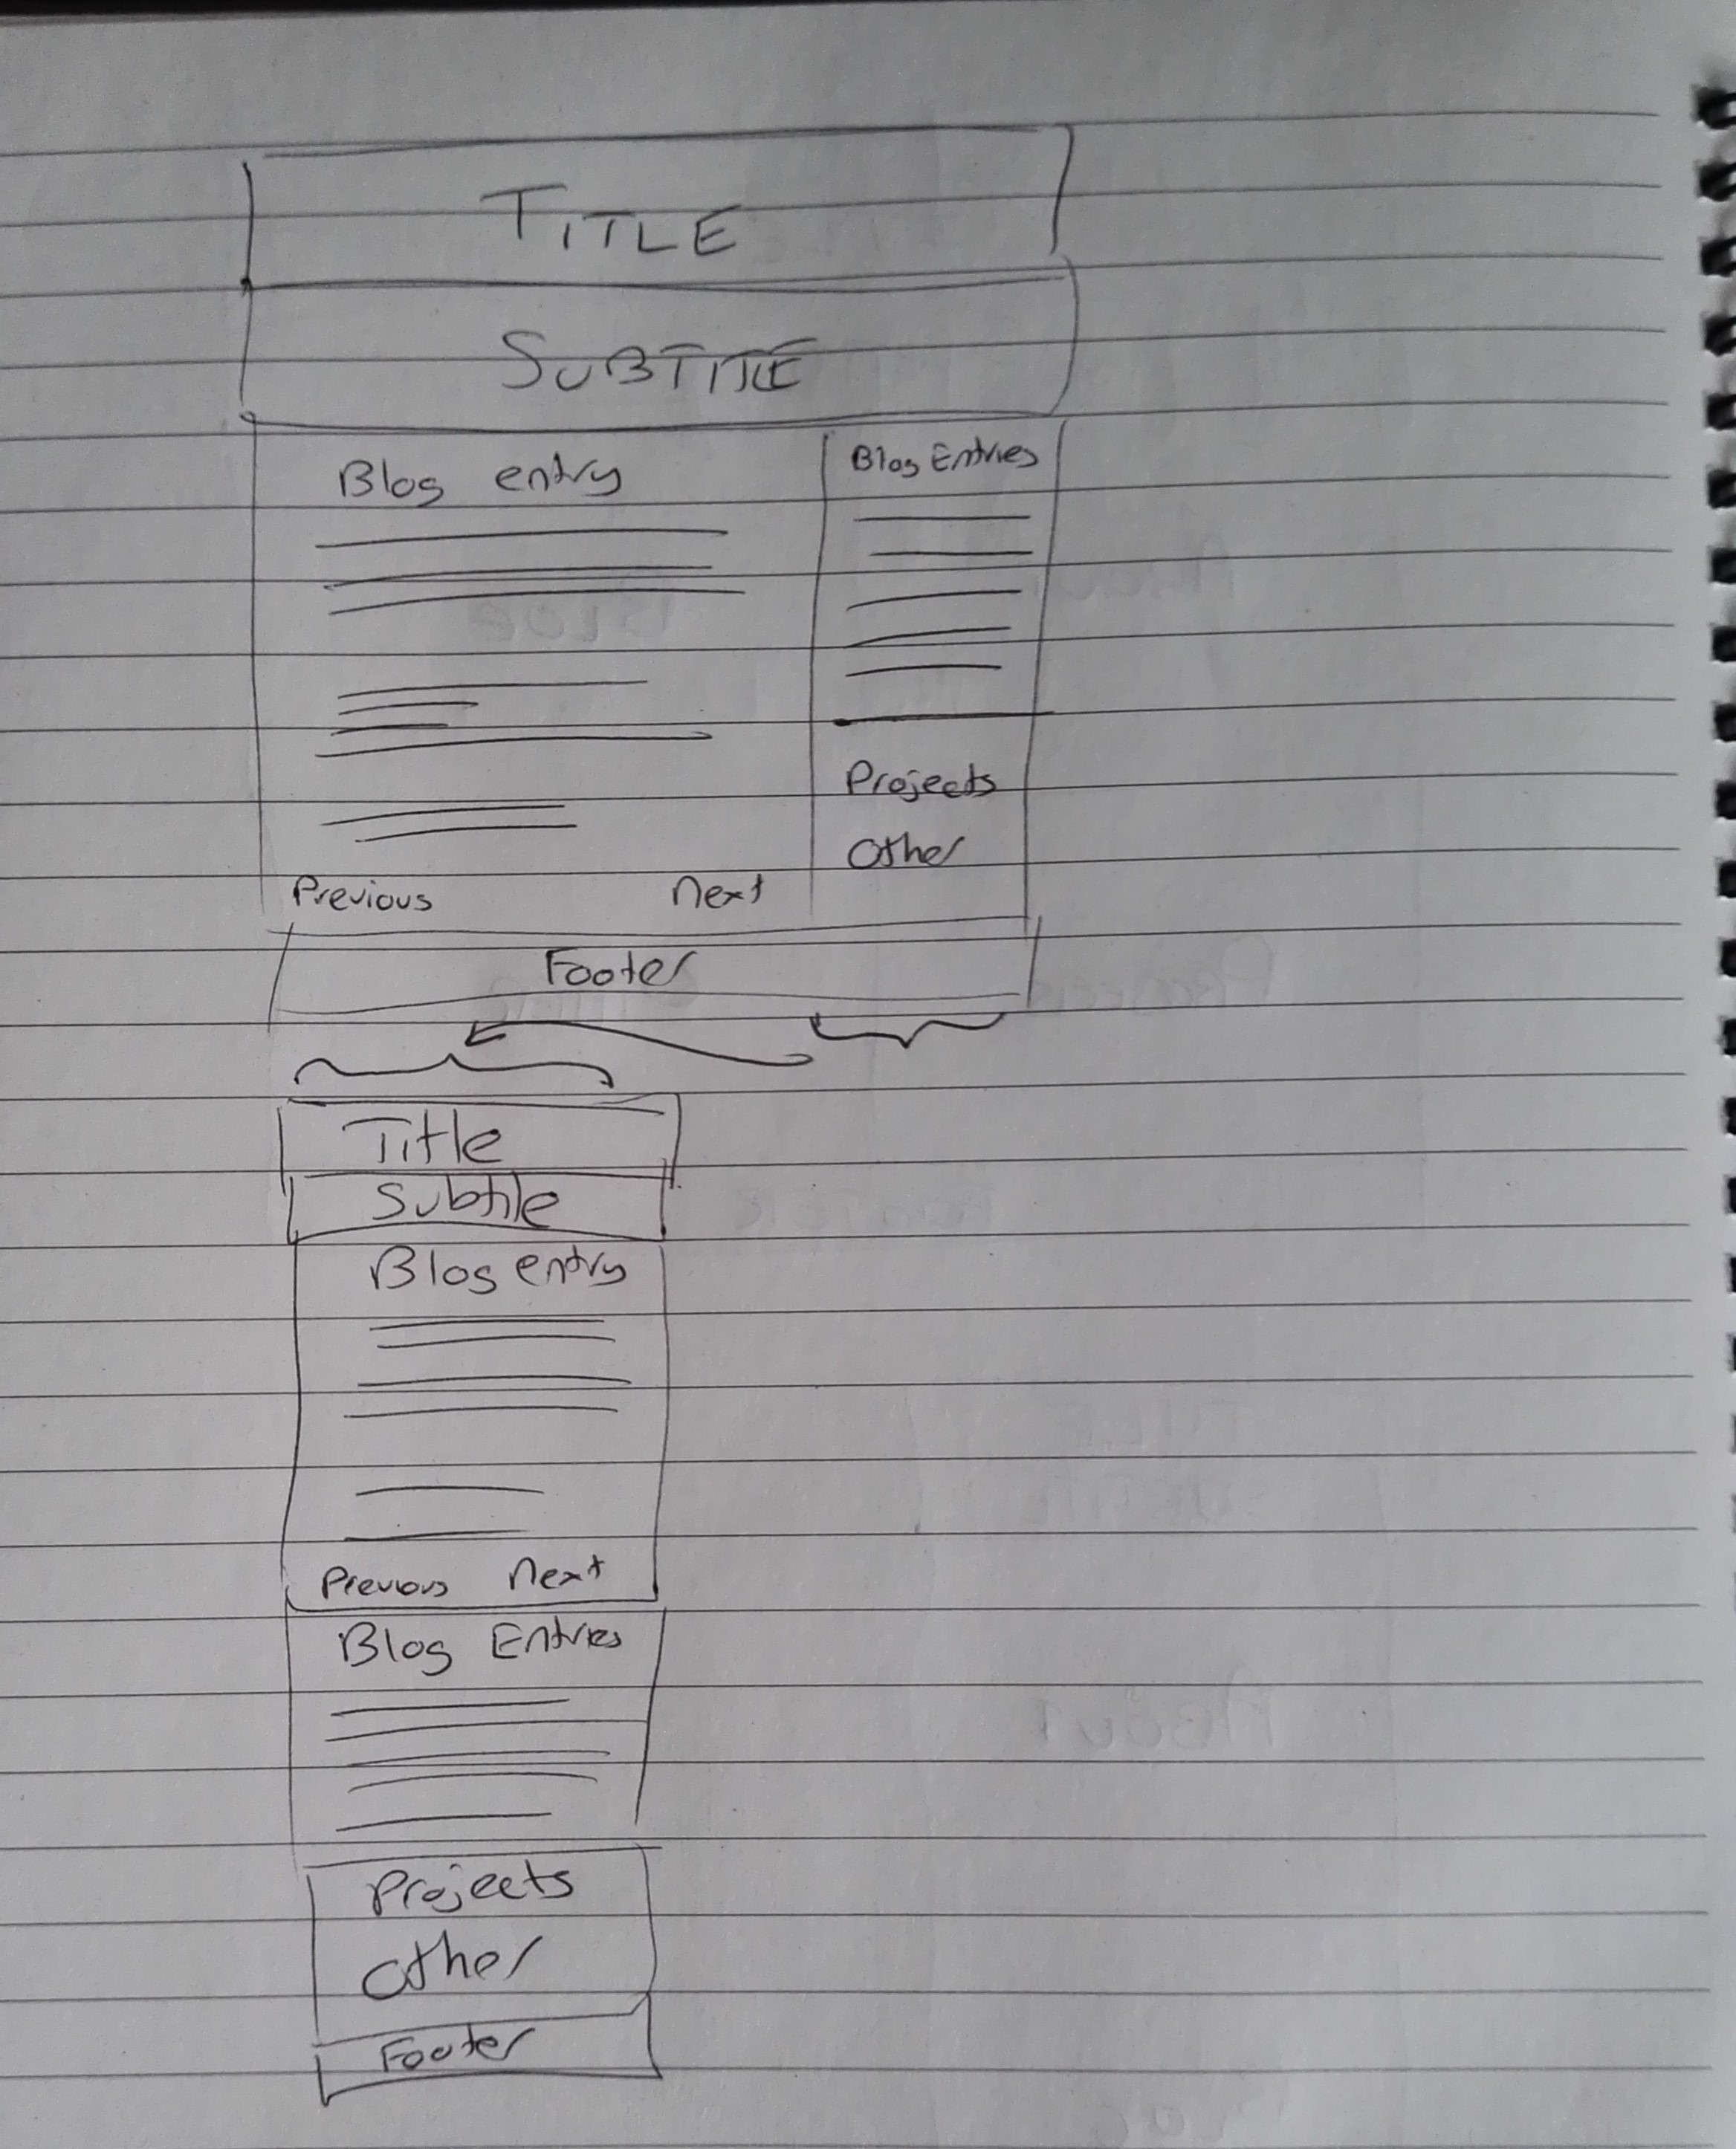 TITLE
SUBTITLE
Blog entry
Blog Entries
Projects
Other
Previous next
Footer
Title
Subtile
Blog entry
Previous next
Blog Entries
Projects
Other
Footer